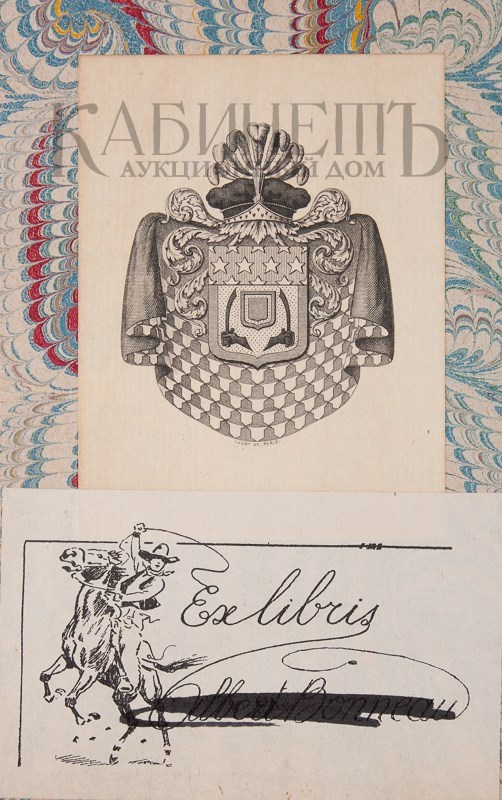 КАБИНЕТЪ
АУКЦИОННЫЙ ДОМ
Ex libris
Gilbert Bonneau